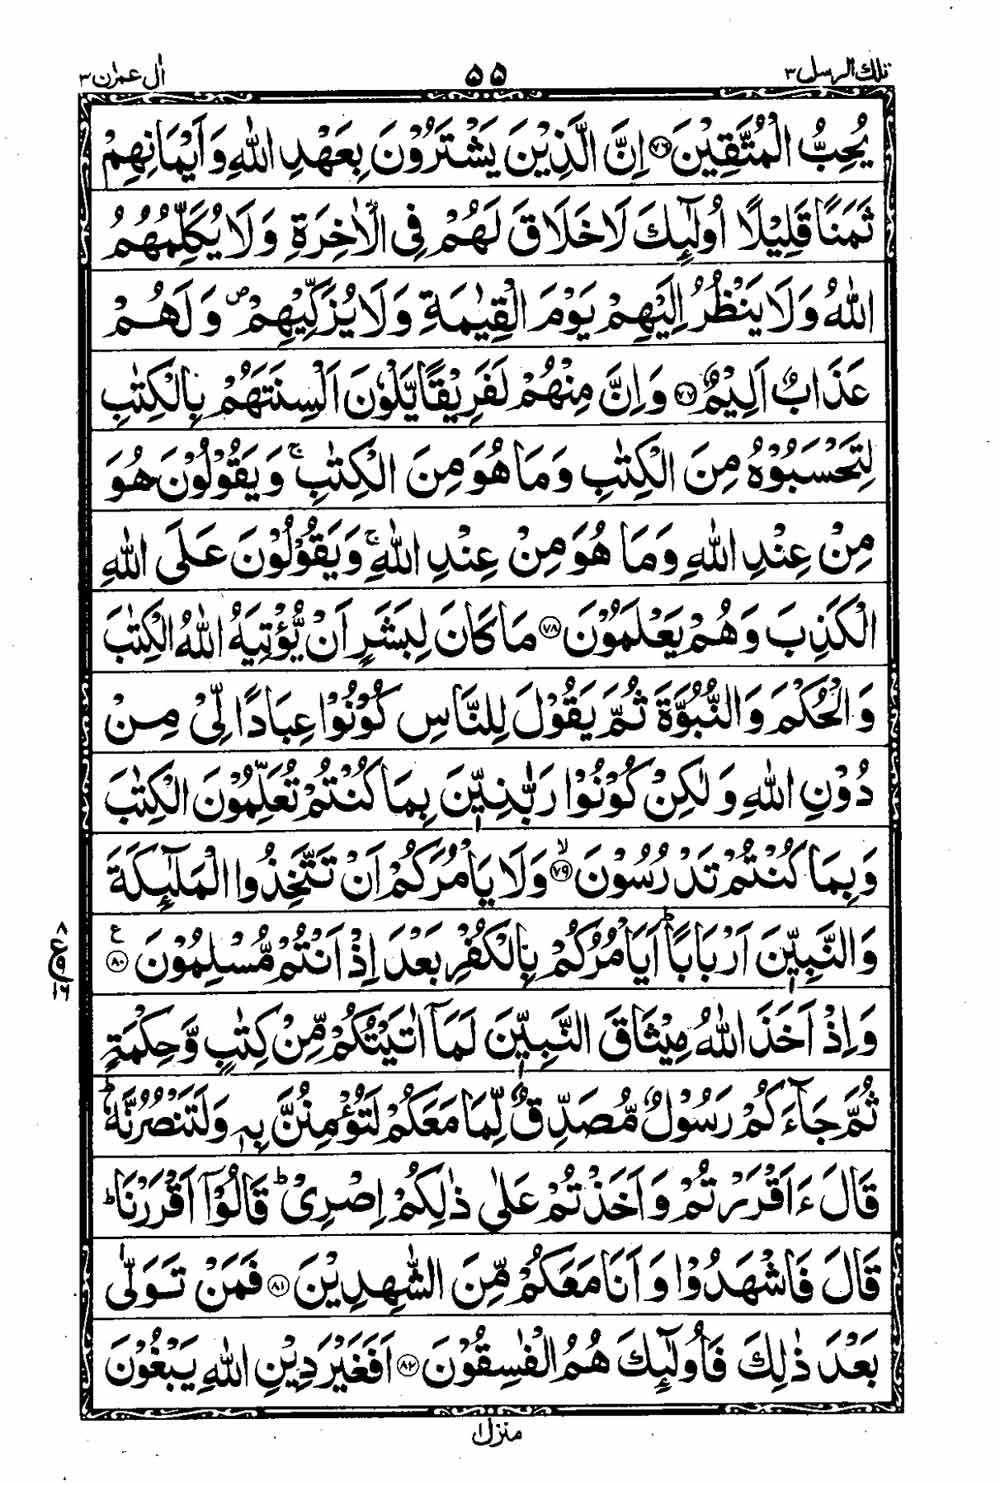 تلك الرسل ٣ ۵۵ اٰل عمرٰن ٣
يُحِبُّ الْمُتَّقِيْنَ ﴿۷۶﴾ اِنَّ الَّذِيْنَ يَشْتَرُوْنَ بِعَهْدِ اللّٰهِ وَاَيْمَانِهِمْ
ثَمَنًا قَلِيْلًا اُولٰٓئِكَ لَا خَلَاقَ لَهُمْ فِى الْاٰخِرَةِ وَلَا يُكَلِّمُهُمُ
اللّٰهُ وَلَا يَنْظُرُ اِلَيْهِمْ يَوْمَ الْقِيٰمَةِ وَلَا يُزَكِّيْهِمْ ۪ وَلَهُمْ
عَذَابٌ اَلِيْمٌ ﴿۷۷﴾ وَاِنَّ مِنْهُمْ لَفَرِيْقًا يَّلْوٗنَ اَلْسِنَتَهُمْ بِالْكِتٰبِ
لِتَحْسَبُوْهُ مِنَ الْكِتٰبِ وَمَا هُوَ مِنَ الْكِتٰبِ ۚ وَيَقُوْلُوْنَ هُوَ
مِنْ عِنْدِ اللّٰهِ وَمَا هُوَ مِنْ عِنْدِ اللّٰهِ ۚ وَيَقُوْلُوْنَ عَلَى اللّٰهِ
الْكَذِبَ وَهُمْ يَعْلَمُوْنَ ﴿۷۸﴾ مَا كَانَ لِبَشَرٍ اَنْ يُّؤْتِيَهُ اللّٰهُ الْكِتٰبَ
وَالْحُكْمَ وَالنُّبُوَّةَ ثُمَّ يَقُوْلَ لِلنَّاسِ كُوْنُوْا عِبَادًا لِّىْ مِنْ
دُوْنِ اللّٰهِ وَلٰكِنْ كُوْنُوْا رَبّٰنِيّٖنَ بِمَا كُنْتُمْ تُعَلِّمُوْنَ الْكِتٰبَ
وَبِمَا كُنْتُمْ تَدْرُسُوْنَ ۙ﴿۷۹﴾ وَلَا يَاْمُرَكُمْ اَنْ تَتَّخِذُوا الْمَلٰٓئِكَةَ
وَالنَّبِيّٖنَ اَرْبَابًا ؕ اَيَاْمُرُكُمْ بِالْكُفْرِ بَعْدَ اِذْ اَنْتُمْ مُّسْلِمُوْنَ ﴿۸۰﴾ ع
٨ ع ٩ ١٦
وَاِذْ اَخَذَ اللّٰهُ مِيْثَاقَ النَّبِيّٖنَ لَمَاۤ اٰتَيْتُكُمْ مِّنْ كِتٰبٍ وَّحِكْمَةٍ
ثُمَّ جَآءَكُمْ رَسُوْلٌ مُّصَدِّقٌ لِّمَا مَعَكُمْ لَتُؤْمِنُنَّ بِهٖ وَلَتَنْصُرُنَّهٗ ؕ
قَالَ ءَاَقْرَرْتُمْ وَاَخَذْتُمْ عَلٰى ذٰلِكُمْ اِصْرِىْ ؕ قَالُوْۤا اَقْرَرْنَا ؕ
قَالَ فَاشْهَدُوْا وَاَنَا مَعَكُمْ مِّنَ الشّٰهِدِيْنَ ﴿۸۱﴾ فَمَنْ تَوَلّٰى
بَعْدَ ذٰلِكَ فَاُولٰٓئِكَ هُمُ الْفٰسِقُوْنَ ﴿۸۲﴾ اَفَغَيْرَ دِيْنِ اللّٰهِ يَبْغُوْنَ
منزل ١